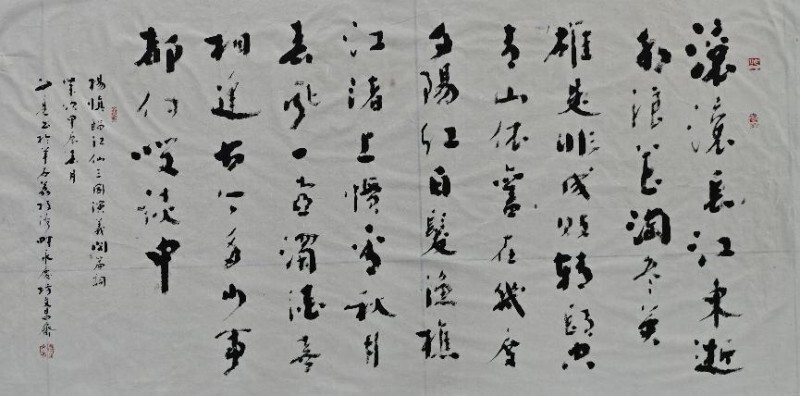 滚滚長江東逝
水浪花淘尽英
雄是非成敗轉頭空
青山依舊在幾度
夕陽紅白髮漁樵
江渚上慣看秋月
春風一壺濁酒喜
相逢古今多少事
都付笑談中
楊慎臨江仙三國演義開篇詞
歲次甲 月
書於羊石荔 湖畔水 坊文 齋